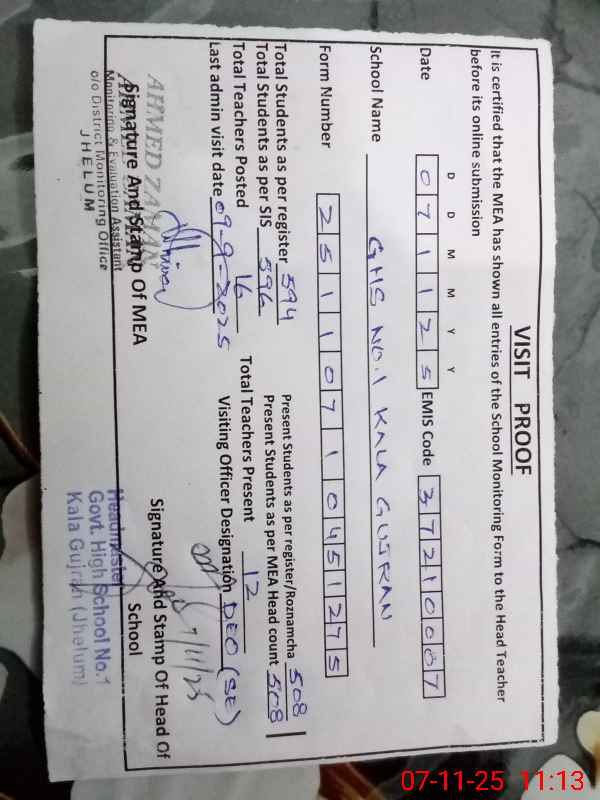 VISIT PROOF
It is certified that the MEA has shown all entries of the School Monitoring Form to the Head Teacher
before its online submission
D D M M Y Y
Date 0 7 1 1 2 5 EMIS Code 3 7 2 1 0 0 0 7
School Name GHS NO.1 KALA GUJRAN
Form Number 2 5 1 1 0 7 1 0 4 5 1 2 7 5
Total Students as per register 594 Present Students as per register/Roznamcha 508
Total Students as per SIS 596 Present Students as per MEA Head count 508
Total Teachers Posted 16 Total Teachers Present 12
Last admin visit date 09-9-2025 Visiting Officer Designation DEO (SE)
7/11/25
AHMED ZAMAN
Signature And Stamp Of MEA Signature And Stamp Of Head Of
School
Monitoring & Evaluation Assistant
o/o District Monitoring Office
JHELUM
Headmaster
Govt. High School No.1
Kala Gujran (Jhelum)
07-11-25 11:13